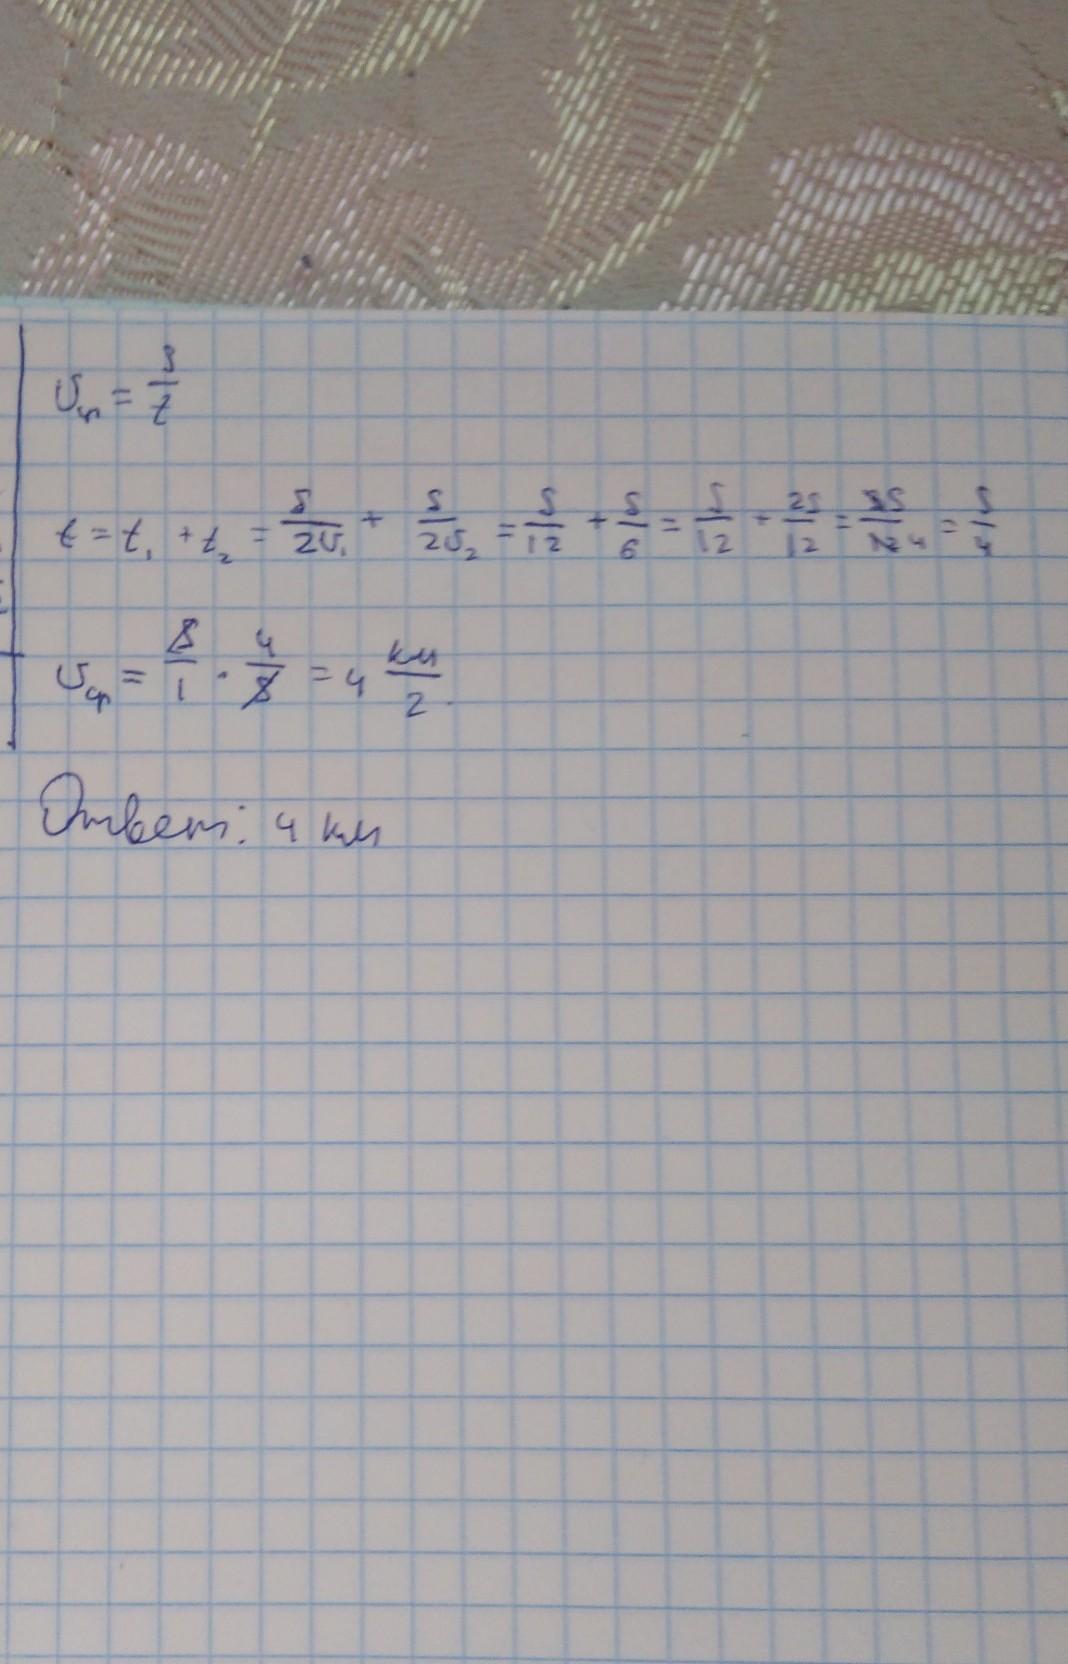 υср = S/t
t = t₁ + t₂ = S/2υ₁ + S/2υ₂ = S/12 + S/6 = S/12 + 2S/12 = 3S/12 4 = S/4
υср = S/1 · 4/S = 4 км/г
Ответ: 4 км